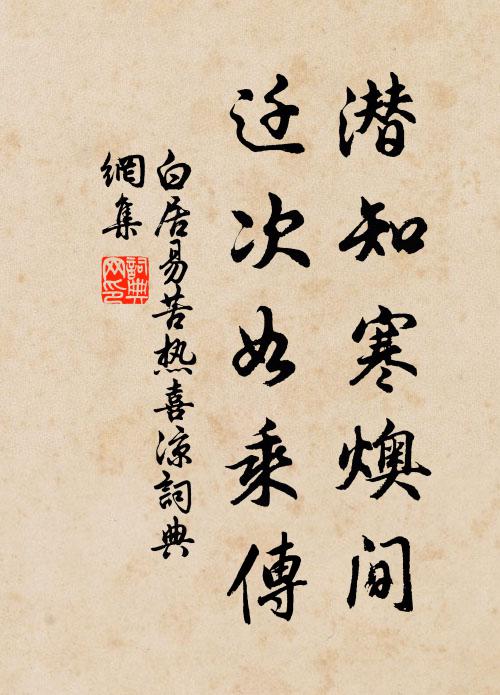 潜知寒燠间
迁次如乘傳
白居易苦热喜凉詞典
網集
詞典
网印